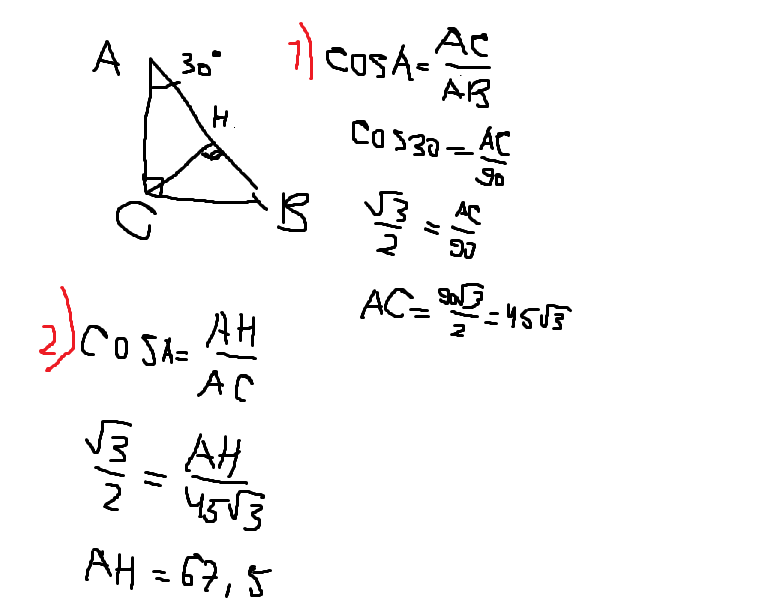 A 30°
H
C
B
1) cosA = AC/AB
cos30 = AC/90
√3/2 = AC/90
AC = 90√3/2 = 45√3
2) cosA = AH/AC
√3/2 = AH/45√3
AH = 67,5